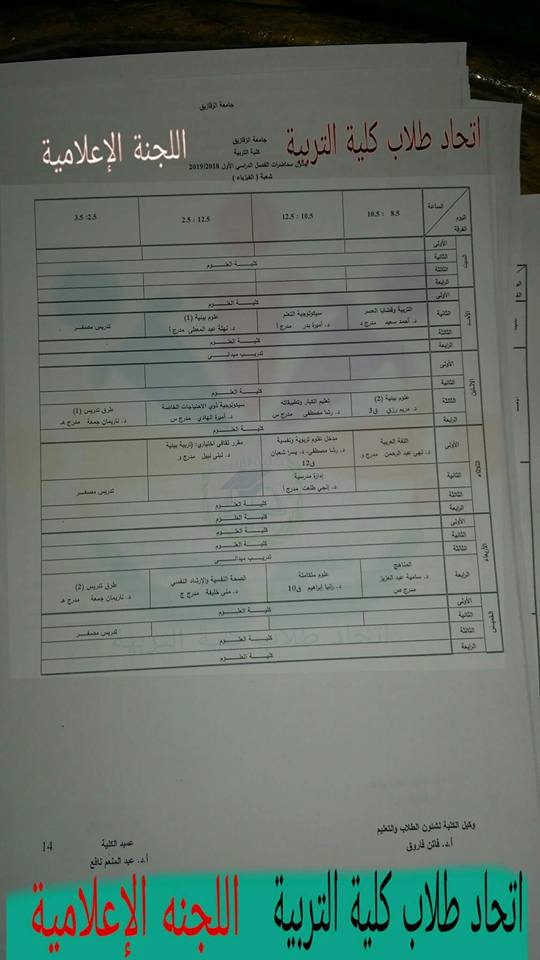 جامعة الزقازيق
اتحاد طلاب كلية التربية اللجنة الإعلامية
جامعة الزقازيق
كلية التربية
محاضرات الفصل الدراسي الأول 2019/2018
شعبة ( الفيزياء )
الساعة
اليوم
الفرقة
8.5 : 10.5
10.5 : 12.5
12.5 : 2.5
2.5: 3.5
السبت
الأولى
الثانية
كليـــة العلـــوم
الثالثة
الرابعة
الأحد
الأولى
كليـــة العلـــوم
الثانية
التربية وقضايا العصر
د. أحمد سعيد مدرج د
سيكولوجية التعلم
د. أميرة بدر مدرج أ
علوم بيئية (1)
د. نهلة عبد المعطي مدرج أ
تدريس مصغـر
الثالثة
كليـــة العلـــوم
الرابعة
تدريـب ميدانـي
الاثنين
الأولى
الثانية
كليـــة العلـــوم
الثالثة
علوم بيئية (2)
د. مريم رزق ق3
تعليم الكبار وتطبيقاته
د. رشا مصطفى مدرج س
سيكولوجية ذوي الاحتياجات الخاصة
د. أميرة الهادي مدرج س
طرق تدريس (1)
د. ناريمان جمعة مدرج هـ
الرابعة
كليـــة العلـــوم
الثلاثاء
الأولى
اللغة العربية
د. نهى عبد الرحمن مدرج و
مدخل علوم تربوية ونفسية
د. رشا مصطفى، د. يسرا شعبان
ق12
مقرر ثقافي اختياري: (تربية بيئية
د. لبنى نبيل مدرج و
الثانية
إدارة مدرسية
د. إنجي طلعت مدرج أ
تدريس مصغـر
الثالثة
كليـــة العلـــوم
الرابعة
كليـــة العلـــوم
الأربعاء
الأولى
كليـــة العلـــوم
الثانية
كليـــة العلـــوم
الثالثة
تدريـب ميدانـي
الرابعة
المناهج
د. سامية عبد العزيز
مدرج ص
علوم متكاملة
د. رانيا إبراهيم ق10
الصحة النفسية والإرشاد النفسي
د. منى خليفة مدرج ج
طرق تدريس (2)
د. ناريمان جمعة مدرج هـ
الخميس
الأولى
كليـــة العلـــوم
الثانية
تدريس مصغـر
الثالثة
كليـــة العلـــوم
الرابعة
كليـــة العلـــوم
اتحاد طلاب كلية التربية
وكيل الكلية لشئون الطلاب والتعليم
أ.د. فاتن فاروق
عميد الكلية
أ.د. عبد المنعم نافع
14
اتحاد طلاب كلية التربية اللجنه الإعلامية